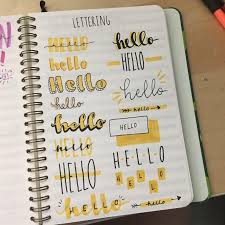 LETTERING
HELLO
HELLO
Hello
hello
hello
HELLO
HELLO
HELLO
hello
HELLO
hello
HELLO
HELLO
HELLO
hello